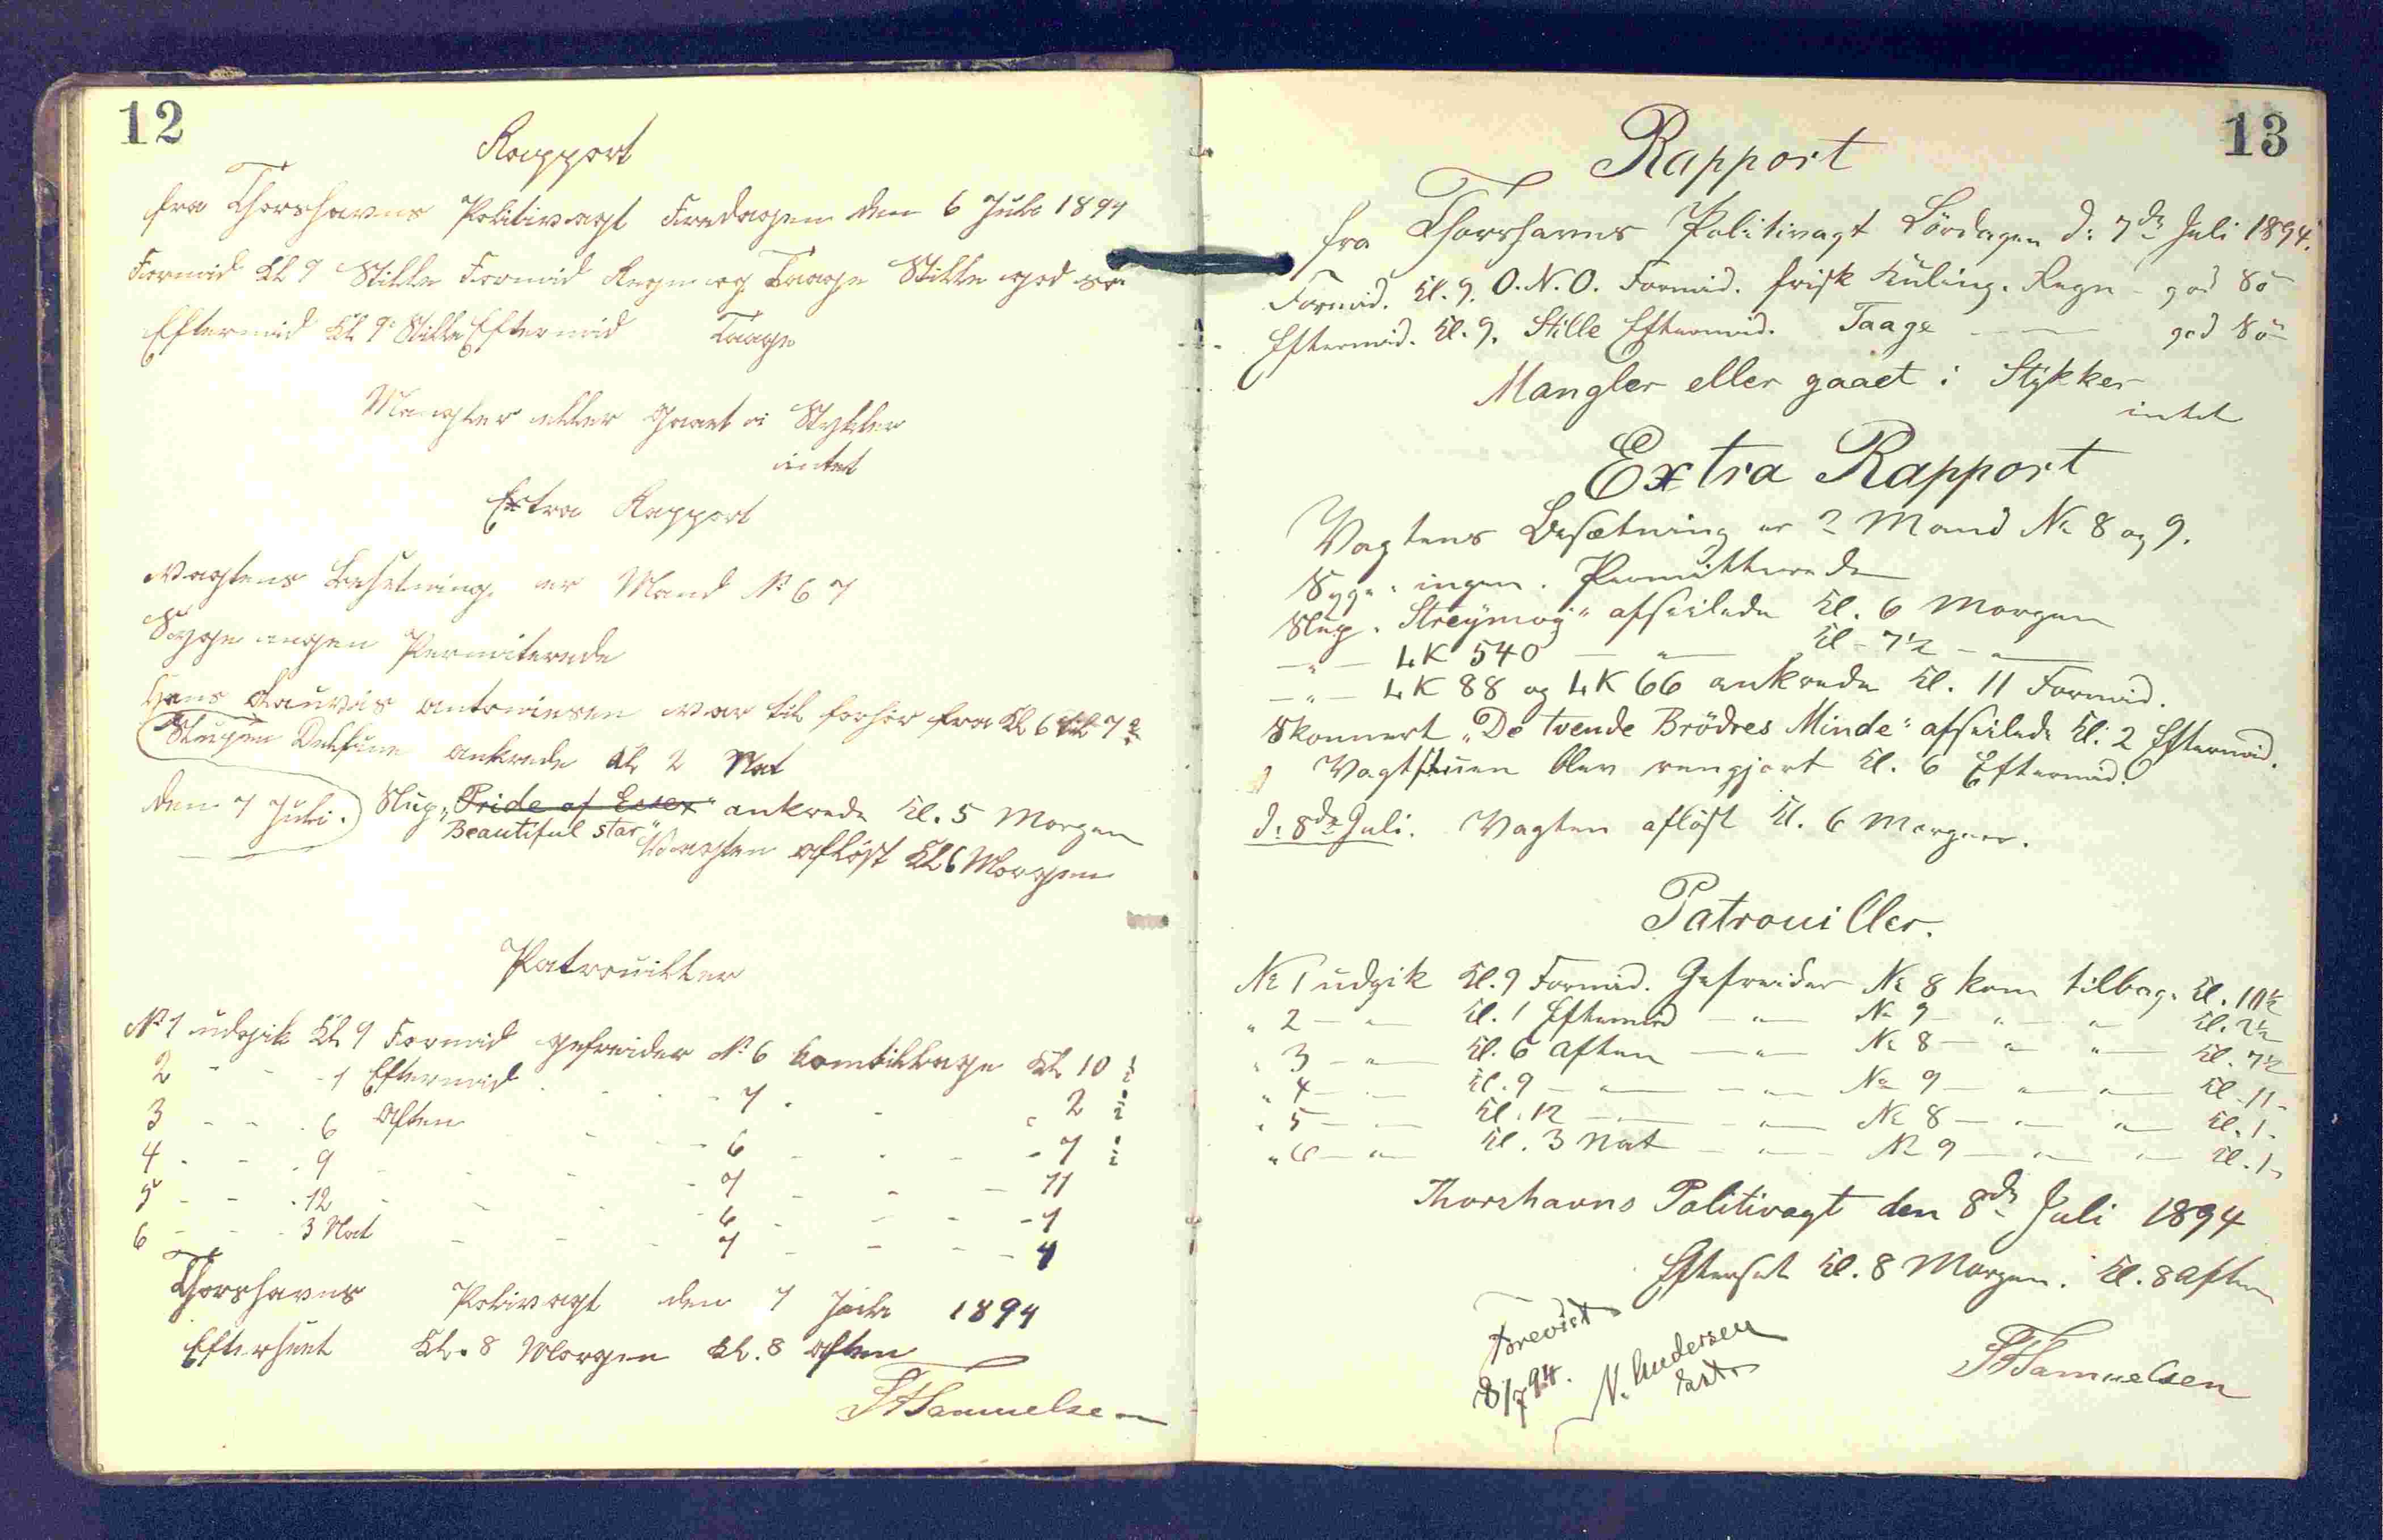 12
Rapport
fra Thorshavns Politivagt Fredagen den 6 Juli 1894
Formid Kl 9 Stille Formid Regn og Taage Stille god Sø
Eftermid Kl 9 Stille Eftermid Taage
Mangler eller gaaet i Stykker
intet
Extra Rapport
Vagtens Besetning er Mand No 6 7
Syge ingen Permiterede
Hans Lauvis Antoniesen var til forhør fra Kl 6 til 7
Slupen Delfinen ankrede Kl 2 Nat
den 7 Juli. Slup „Pride of Essex" ankrede Kl. 5 Morgen
Beautiful star"
Vagten afløst Kl 6 Morgen
Patrouiller
No 1 udgik Kl 9 Formid gefreider No 6 kom tilbage Kl 10 ½
2 - - - 1 Eftermid - - - 7 - - - 2 ½
3 - - - 6 Aften - - - 6 - - - 7 ½
4 - - - 9 - - - 7 - - - 11
5 - - - 12 - - - 6 - - - 1
6 - - - 3 Nat - - - 7 - - - 4
Thorshavns Polivagt den 7 Juli 1894
Efterseet Kl. 8 Morgen Kl. 8 Aften
Samuelsen
13
Rapport
fra Thorshavns Politivagt Lördagen d: 7de Juli 1894.
Formid. Kl. 9. O.N.O. Formid. frisk Kuling. Regn - god Sö
Eftermid. Kl. 9. Stille Eftermid. Taage — — god Sö
Mangler eller gaaet i Stykker
intet
Extra Rapport
Vagtens Besætning er 2 Mand No 8 og 9.
Syge: ingen. Permitterede
Slup „Streymoy" afseilede Kl. 6 Morgen
—"— LK 540 —"— Kl - 7½ —"—
—"— LK 88 og LK 66 ankrede Kl. 11 Formid.
Skonnert „De tvende Brödres Minde" afseilede Kl. 2 Eftermid.
Vagtstuen blev rengjort Kl. 6 Eftermid.
d: 8de Juli. Vagten aflöst Kl. 6 Morgen.
Patrouiller.
No 1 udgik Kl. 9 Formid. Gefreider No 8 kom tilbage Kl. 10½
" 2 —"— Kl. 1 Eftermid —"— No 9 —"— "— Kl. 2½
" 3 —"— Kl. 6 Aften —"— No 8 —"— "— Kl. 7½
" 4 —"— Kl. 9 —"— —"— No 9 —"— "— Kl. 11 -
" 5 —"— Kl. 12 —"— —"— No 8 —"— "— Kl. 1 -
" 6 —"— Kl. 3 Nat —"— No 9 —"— "— Kl. 1 -
Thorshavns Politivagt den 8de Juli 1894
Efterset Kl. 8 Morgen. Kl. 8 Aften
Forevist
8/7 94.
N. Andersen
Samuelsen